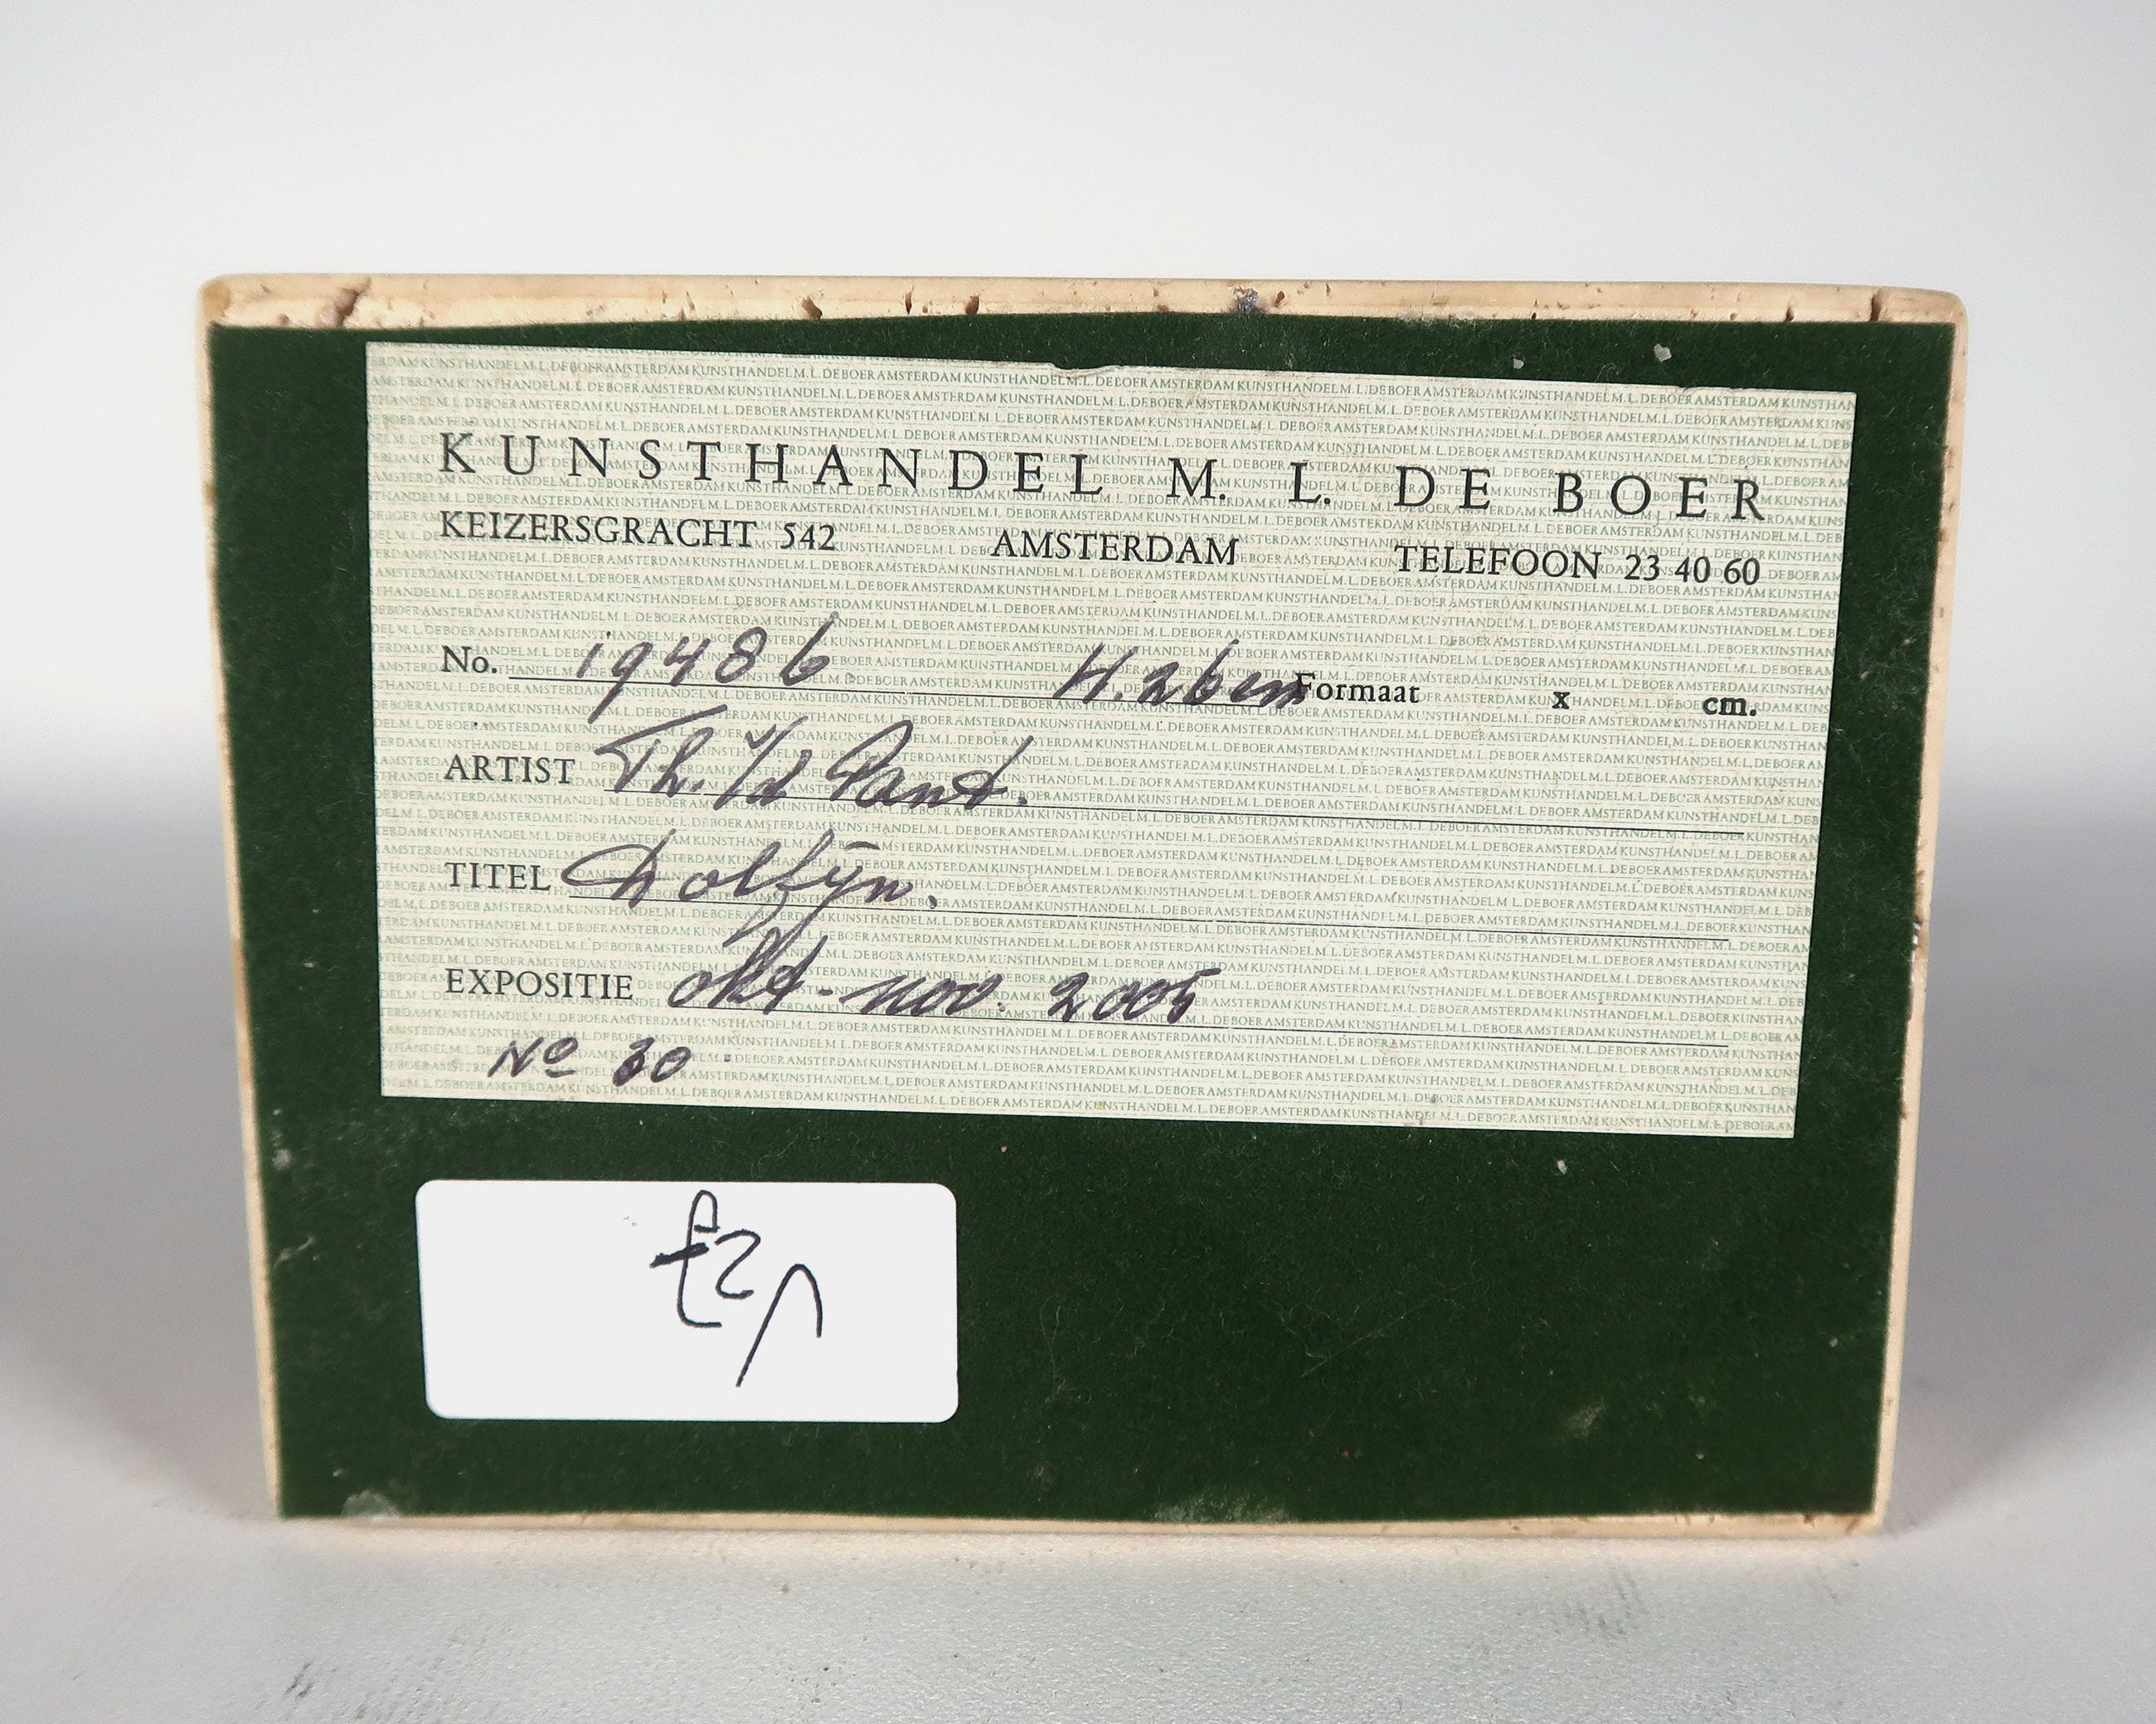 KUNSTHANDEL M. L. DE BOER
KEIZERSGRACHT 542 AMSTERDAM TELEFOON 23 40 60
No. 19486 H. 26 cm Formaat x cm.
ARTIST Th. v/d Pant.
TITEL Dolfijn.
EXPOSITIE okt-nov. 2005
No 30